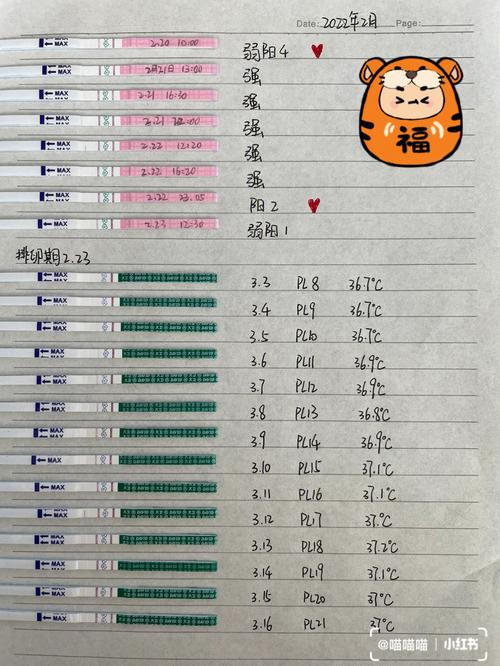 Date: 2022年2月 Page:
MAX 2.20 10:00 弱阳4
MAX 2月21日 13:00 强
MAX 2.21 16:30 强
MAX 2.21 22:00 强
MAX 2.22 12:20 强
MAX 2.22 16:20 强
MAX 2.22 23.05 阳2
MAX 2.23 12:30 弱阳1
福
排卵期2.23
MAX 3.3 PL8 36.7℃
MAX 3.4 PL9 36.7℃
MAX 3.5 PL10 36.7℃
MAX 3.6 PL11 36.9℃
MAX 3.7 PL12 36.9℃
MAX 3.8 PL13 36.8℃
MAX 3.9 PL14 36.9℃
MAX 3.10 PL15 37.1℃
MAX 3.11 PL16 37.1℃
MAX 3.12 PL17 37.℃
MAX 3.13 PL18 37.2℃
MAX 3.14 PL19 37.1℃
MAX 3.15 PL20 37℃
MAX 3.16 PL21 37℃
@喵喵喵 小红书